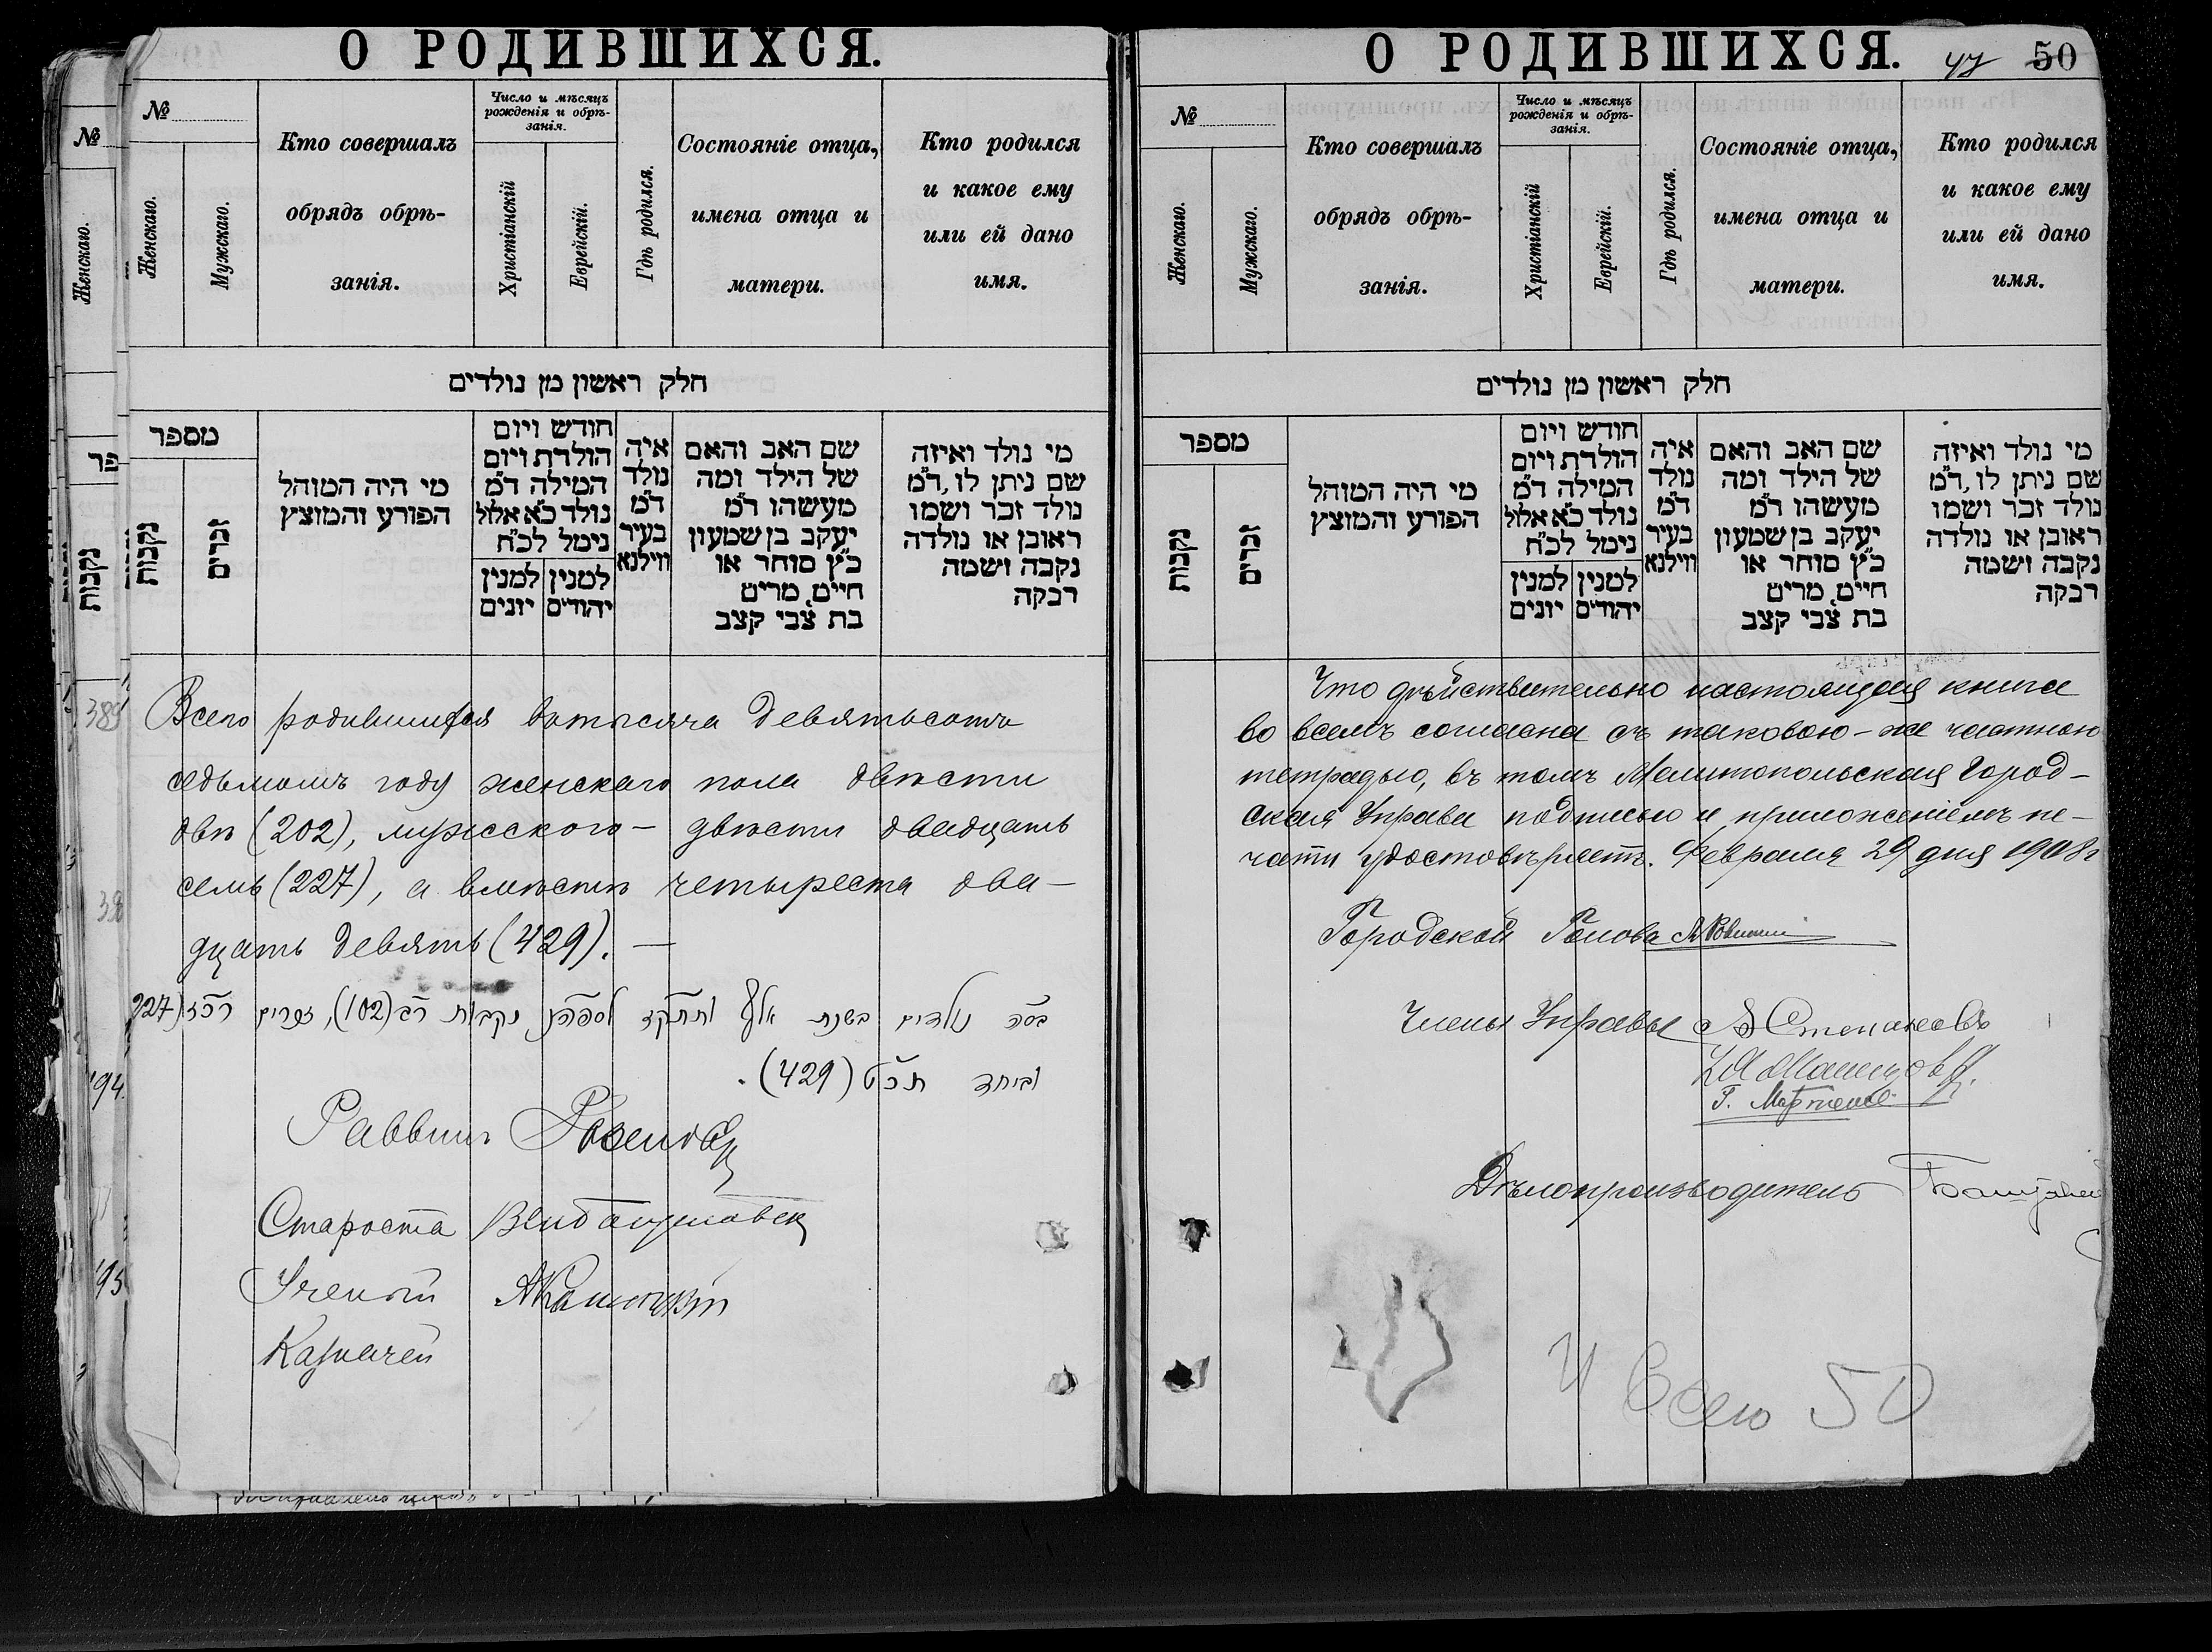 О РОДИВШИХСЯ.
№
Женскаго.
Мужскаго.
Кто совершалъ
обрядъ обрѣ-
занія.
Число и мѣсяцъ
рожденія и обрѣ-
занія.
Христіанскій
Еврейскій.
Гдѣ родился.
Состояніе отца,
имена отца и
матери.
Кто родился
и какое ему
или ей дано
имя.
חלק ראשון מן נולדים
מספר
נקבות
זכרים
מי היה המוהל
הפורע והמוצץ
חודש ויום
הולדת ויום
המילה ד״מ
נולד כ״א אלול
נימל לכ״ח
למנין יהודים
למנין יונים
איה
נולד
ד״מ
בעיר
ווילנא
שם האב והאם
של הילד ומה
מעשהו ד״מ
יעקב בן שמעון
כ״ץ סוחר או
חיים, מרים
בת צבי קצב
מי נולד ואיזה
שם ניתן לו, ד״מ
נולד זכר ושמו
ראובן או נולדה
נקבה ושמה
רבקה
Всего родившихся въ тысяча девятьсотъ
седьмомъ году женскаго пола двѣсти
двѣ (202), мужскаго - двѣсти двадцать
семь (227), а вмѣстѣ четыреста два-
дцать девять (429). —
נולדים בשנת אלף נקבות ר״ב (102), זכרים רכ״ז (227
וביחד תכ״ט (429).
Раввинъ
Староста
Ученый
Казначей
№
Женскаго.
פר
נקבות
389
'94.
'95
О РОДИВШИХСЯ.
47 50
№
Женскаго.
Мужскаго.
Кто совершалъ
обрядъ обрѣ-
занія.
Число и мѣсяцъ
рожденія и обрѣ-
занія.
Христіанскій
Еврейскій.
Гдѣ родился.
Состояніе отца,
имена отца и
матери.
Кто родился
и какое ему
или ей дано
имя.
חלק ראשון מן נולדים
מספר
נקבות
זכרים
מי היה המוהל
הפורע והמוצץ
חודש ויום
הולדת ויום
המילה ד״מ
נולד כ״א אלול
נימל לכ״ח
למנין יהודים
למנין יונים
איה
נולד
ד״מ
בעיר
ווילנא
שם האב והאם
של הילד ומה
מעשהו ד״מ
יעקב בן שמעון
כ״ץ סוחר או
חיים, מרים
בת צבי קצב
מי נולד ואיזה
שם ניתן לו, ד״מ
נולד זכר ושמו
ראובן או נולדה
נקבה ושמה
רבקה
Что дѣйствительно настоящая книга
во всемъ согласна съ таковою-же частною
тетрадью, въ томъ Мелитопольская Город-
ская Управа подписью и приложеніемъ пе-
чати удостовѣряетъ. Февраля 29 дня 1908 г
Городской Голова
Члены Управы А Степановъ
Дѣлопроизводитель
И Всего 50